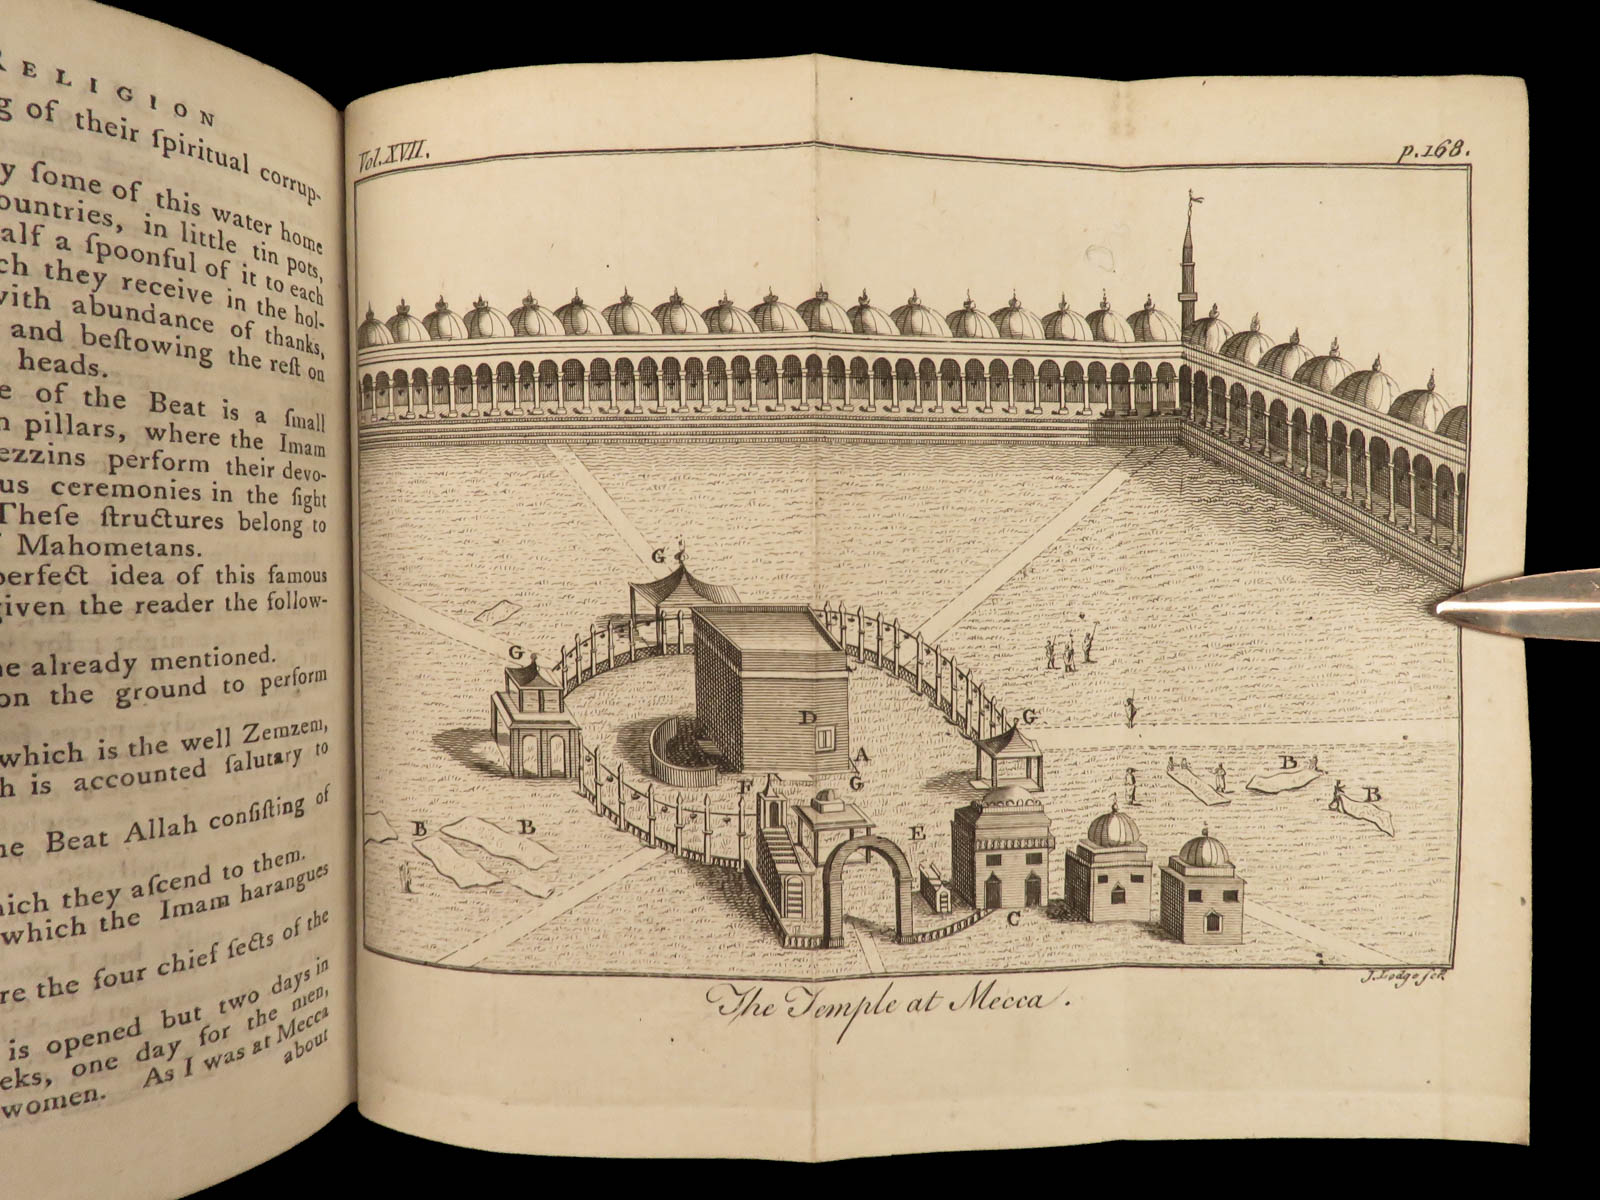 RELIGION
g of their ſpiritual corrup-
y ſome of this water home
ountries, in little tin pots,
alf a ſpoonful of it to each
ch they receive in the hol-
with abundance of thanks,
and beſtowing the reſt on
heads.
e of the Beat is a ſmall
n pillars, where the Imam
ezzins perform their devo-
us ceremonies in the ſight
Theſe ſtructures belong to
Mahometans.
perfect idea of this famous
given the reader the follow-
ne already mentioned.
on the ground to perform
which is the well Zemzem,
h is accounted ſalutary to
he Beat Allah conſiſting of
hich they aſcend to them.
which the Imam harangues
re the four chief ſects of the
is opened but two days in
eks, one day for the men,
women. As I was at Mecca
about
Vol. XVII.
p. 168.
G
G
G
D
A
G
F
B
B
B
B
E
C
J. Lodge ſc.
The Temple at Mecca.